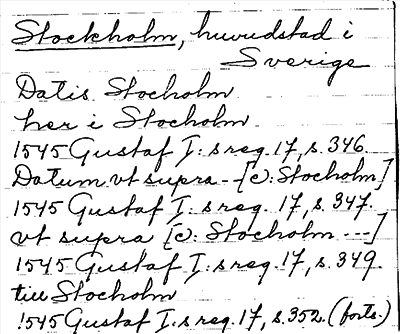 Stockholm, huvudstad i
Sverige
Datis Stocholm
her i Stocholm
1545 Gustaf I:s reg. 17, s. 346.
Datum vt supra - [ɔ: Stocholm]
1545 Gustaf I:s reg. 17, s. 347.
vt supra [ɔ: Stocholm ---]
1545 Gustaf I:s reg. 17, s. 349.
till Stocholm
1545 Gustaf I:s reg. 17, s. 352. (forts.)